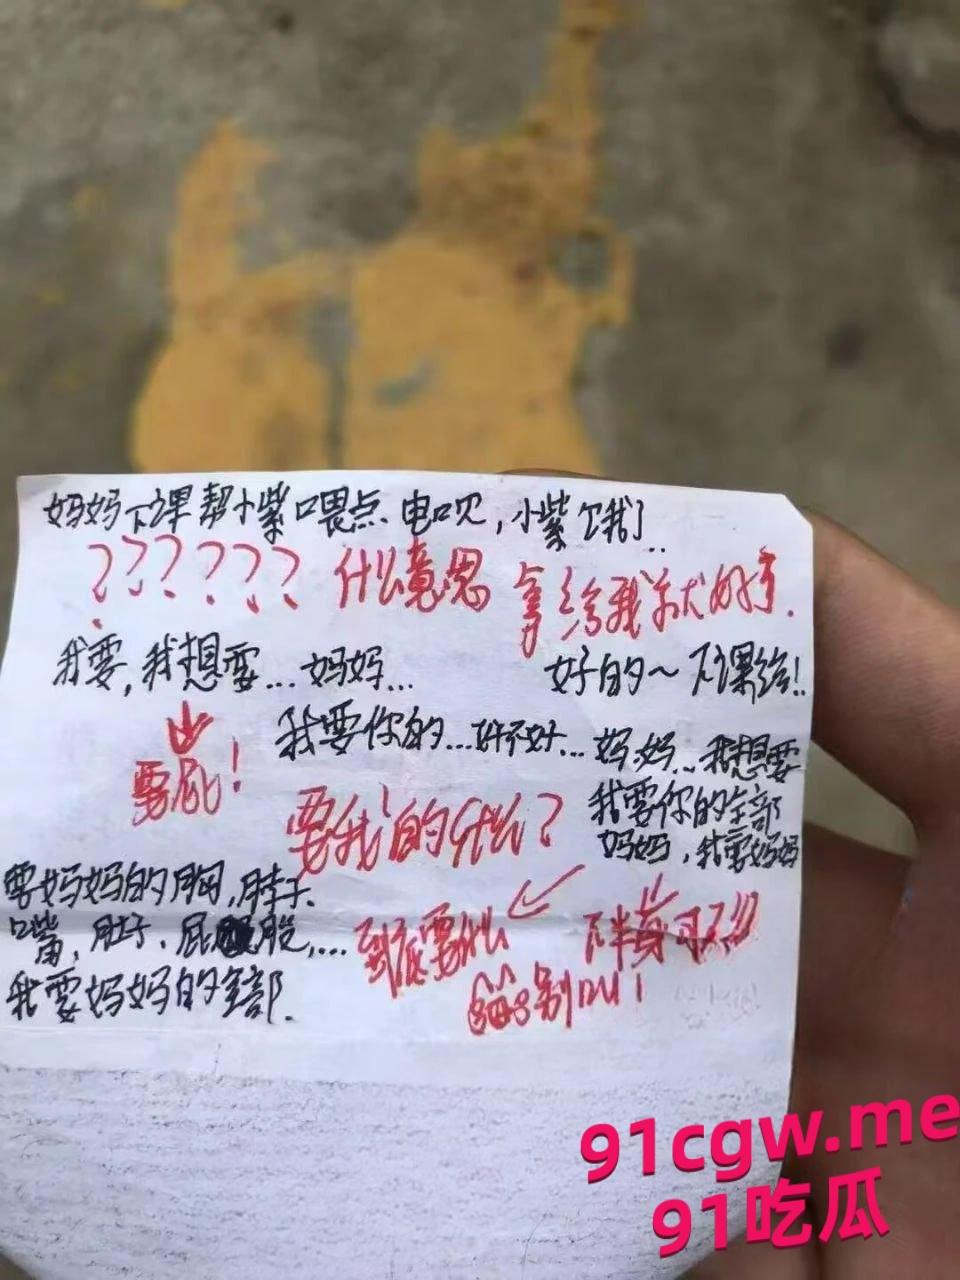 妈妈下课帮小紫喂点电呗，小紫饿了..
？？？？？？ 什么意思 拿给我就好了.
我要，我想要...妈妈... 好的~下课给!!
要屁！
我要你的...好不好... 妈妈...我想要
我要你的全部
妈妈，我要妈妈
要我的什么？
要妈妈的胸，脖子.
嘴，肚子.屁股....
我要妈妈的全部.
到底要什么
别